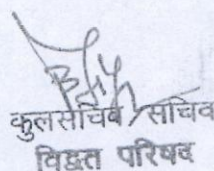 कुलसचिव / सचिव
विद्वत परिषद